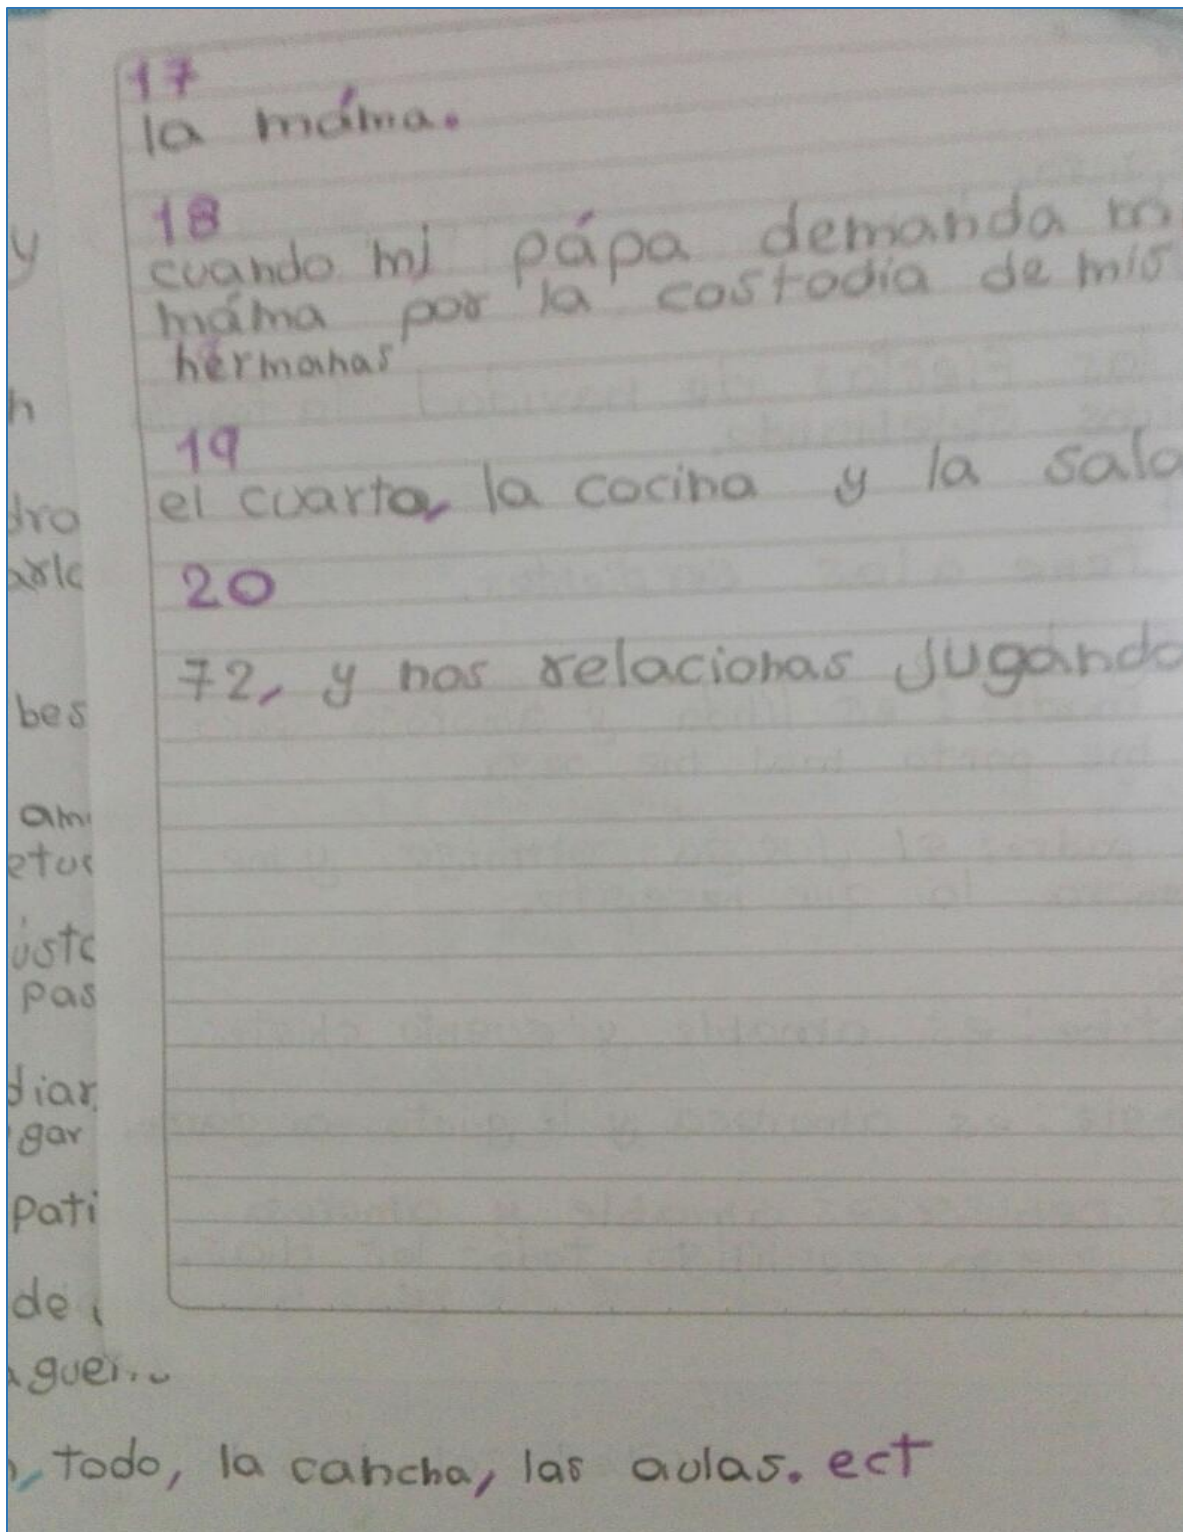 17
la máma.
18
cuando mi pápa demanda
máma por la costodia de mis
hermanas
19
el cuarto, la cocina y la sala
20
72, y nos relacionas jugando
y
bes
pas
gar
pati
de
todo, la cancha, las aulas. ect